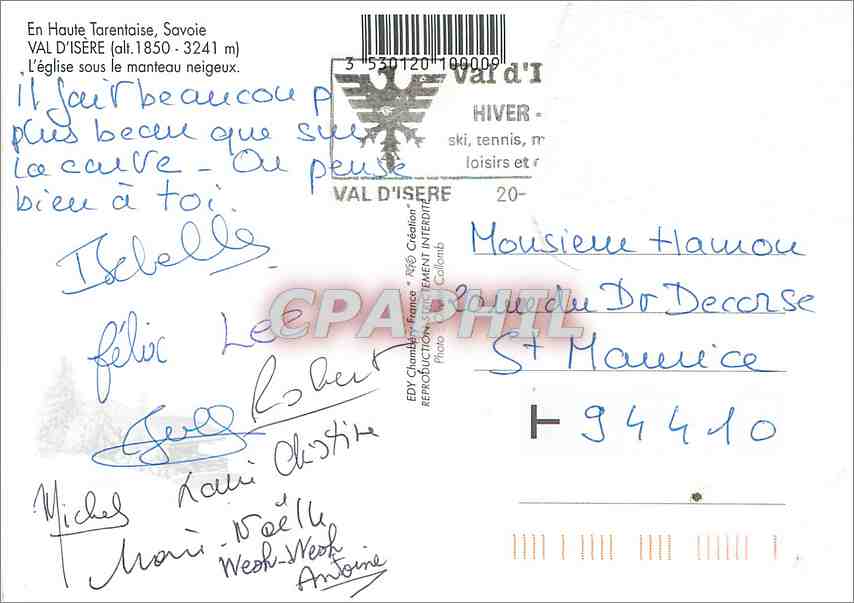 En Haute Tarentaise, Savoie
VAL D'ISÈRE (alt.1850 - 3241 m)
L'église sous le manteau neigeux.
3 530120 100009
il fait beaucoup
plus beau que sur
la carte - On pense
bien à toi.
Isabelle
félix Lee
Robert
Marie Christine
Michel
Marie-Noëlle
Wesh-Wesh
Antoine
Val d'I
HIVER -
ski, tennis, m
loisirs et
VAL D'ISERE 20-
EDY Chambéry France "Création"
REPRODUCTION STRICTEMENT INTERDITE
Photo Collomb
CPAPHIL
Monsieur Hamon
2 rue du Dr Decorse
St Maurice
T 94410